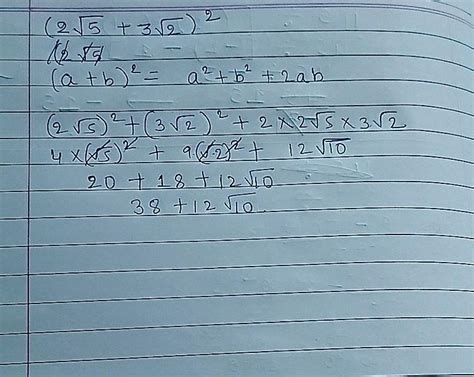 (2√5 + 3√2)²
(2√5
(a + b)² = a² + b² + 2ab
(2√5)² + (3√2)² + 2 × 2√5 × 3√2
4 × (√5)² + 9(√2)² + 12√10
20 + 18 + 12√10
38 + 12√10